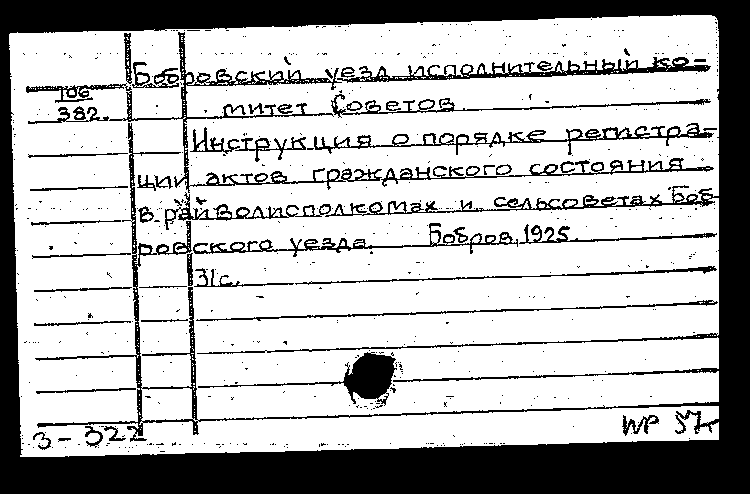 Бобровский уезд исполнительный ко-
106
382.
митет Советов
Инструкция о порядке регистра-
ции актов гражданского состояния
в райволисполкомах и сельсоветах Боб-
ровского уезда. Бобров, 1925.
31с.
3-322
WP